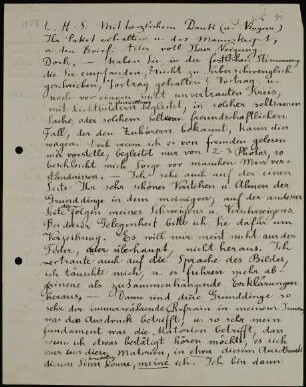 L. H. S. Mit herzlichem Dank
Ihr Paket erhalten u. das Manuskript,
u. den Brief. Alles voll Ihrer Neigung.
Doch, – haben Sie in der Stimmung
die Sie empfanden, nicht zu überschwenglich
geschrieben, Vortrag gehalten? Vortrag u.
noch vor einem nicht unvertrauten Kreis,
mit Lichtbildern begleitet, in solcher seltsamen
Sache oder solchem freundschaftlichen
Fall, der den Zuhörern bekannt, kann dies
wagen. Doch wenn ich es von fremden gelesen
mir vorstelle, begleitet nur von 2–3 Photos, so
beschleicht mich Sorge vor manchen Missver-
ständnissen. – Ich sehe auch auf der einen
Seite Ihr sehr schönes Verstehen u. Ahnen der
Grunddinge in dem meinigen, auf der anderen
Seite Folgen meines Schweigens u. Verschweigens.
Bei dieser Gelegenheit bitte ich Sie dafür um
Verzeihung. Es will mir meist nicht aus der
Feder, überhaupt, nicht heraus. Ich
vertraute auch auf die Sprache des Bildes,
ich täuschte mich, u. es führen mehr ab-
gerissene als zusammenhängende Erklärungen
heraus, – Dann sind diese Grunddinge so
sehr der immerwährende Refrain in meinem
was den Ausdruck betrifft, u. so sehr mein
Fundament was die Materien betrifft, dass
wenn ich etwas bestätigt hören möchte, es sich
nur um diese Materien, in etwa diesem
diesem Sinn könne, meine ich. Ich bin dann